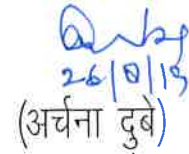 26/8/19
(अर्चना दुबे)